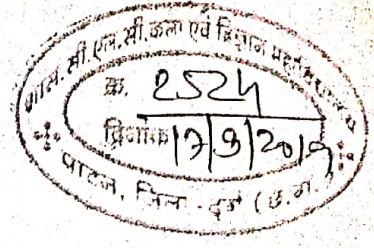 शास. सी.एल.सी. कला एवं विज्ञान महाविद्यालय
क्र. 2524
दिनांक 17/9/2019
पाटन, जिला - दुर्ग (छ.ग.)